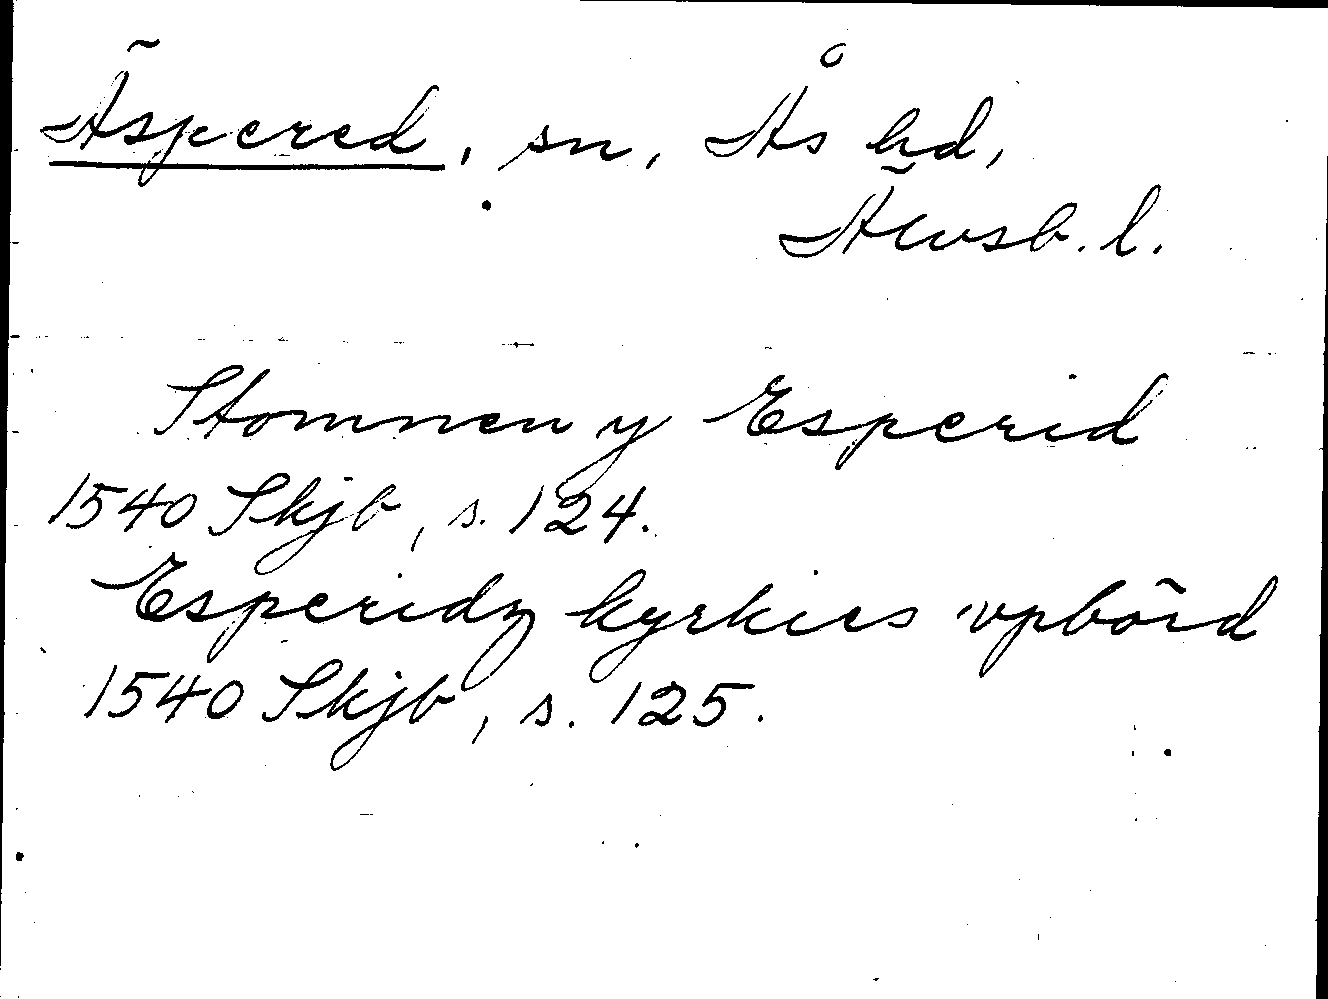 Äspered, sn, Ås hd,
Älvsb. l.
Stomnen y Esperid
1540 Skjb, s. 124.
Esperidz kyrkies vpbörd
1540 Skjb, s. 125.